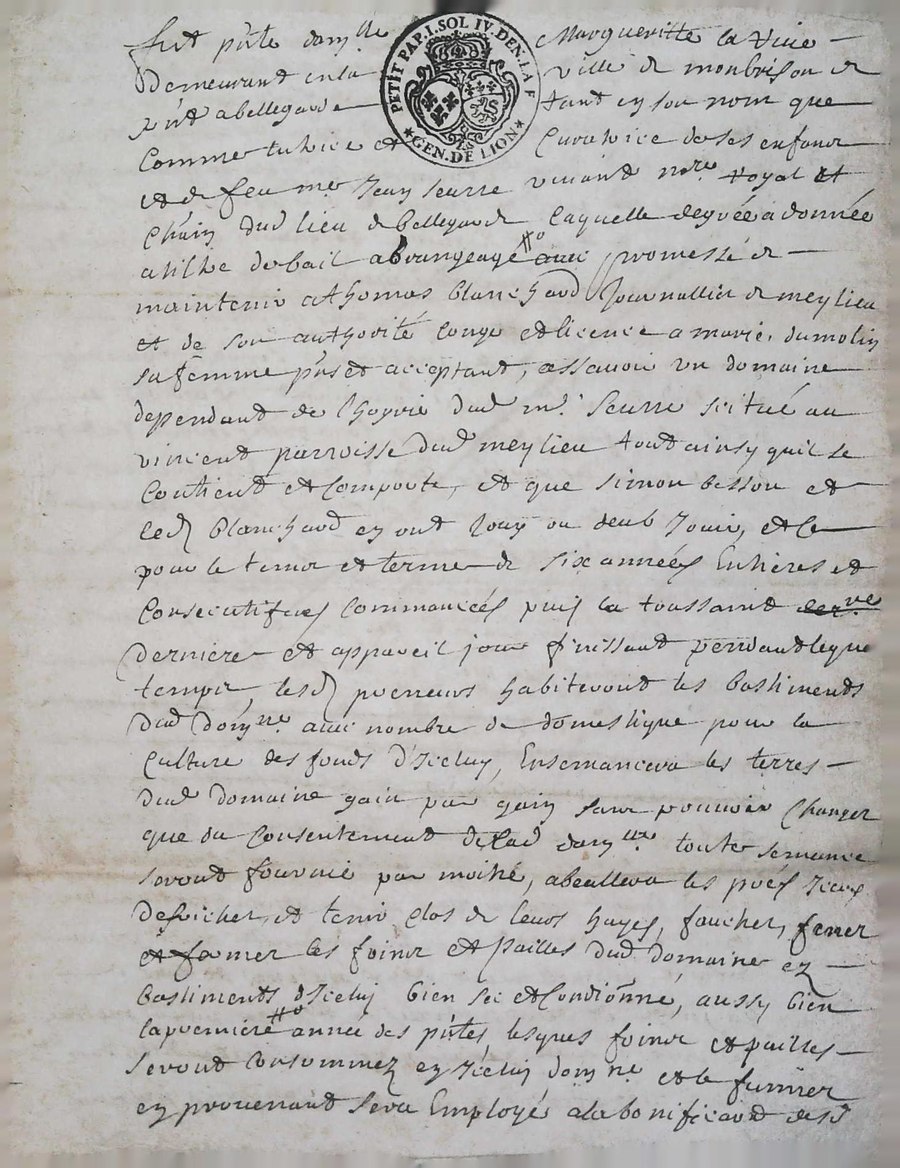 PETIT PAP. I. SOL IV. DEN. LA F
GEN. DE LION
fut p̃nte dam.lle Margueritte la Viue
Demeurant en la ville de monbrison de
p̃nt a bellegarde tant en son nom que
Comme tutrice et Curatrice de ses enfans
et de feu me Jean seurre viuant nore royal et
Chãin dud lieu de bellegarde laquelle de gré a donnée
a tiltre de bail a grangeage auec promesse de
maintenir a thomas blanchard Journallier de meylieu
et de son authorité congé et licence a marie dumolin
sa femme p̃nts et acceptant, assauoir un domaine
dependant de l'hoyrie dud mr seurre scitué au
vincent parroisse dud meylieu tout ainsy quil se
Contient et Comporte, et que simon besson et
led blanchard en ont Jouy ou deub Jouir, et ce
pour le temps et terme de six années Entieres et
Consecutifues Commancées puis la toussaint
derniere et a pareil jour finissant pendant lequel
temps lesd preneurs habiteront les bastiments
dud domne auec nombre de domestique pour la
Culture des fonds d'Iceluy, Ensemancera les terres
dud domaine gain par gain sans pouuoir Changer
que du Consentement de lad dam.lle toute semance
seront fournie par moitié, abeallera les prés Iceux
defricher et tenir clos de leurs hayes, faucher, fener
et fermer les foins et pailles dud domaine en
bastiments d'Iceluy bien sec et Condiõnné, aussy bien
la premiere année des p̃ntes, lesques foins et pailles
seront Consommez en Iceluy domne et le fumier
en prouenant sera Employé a la bonificaõn desd